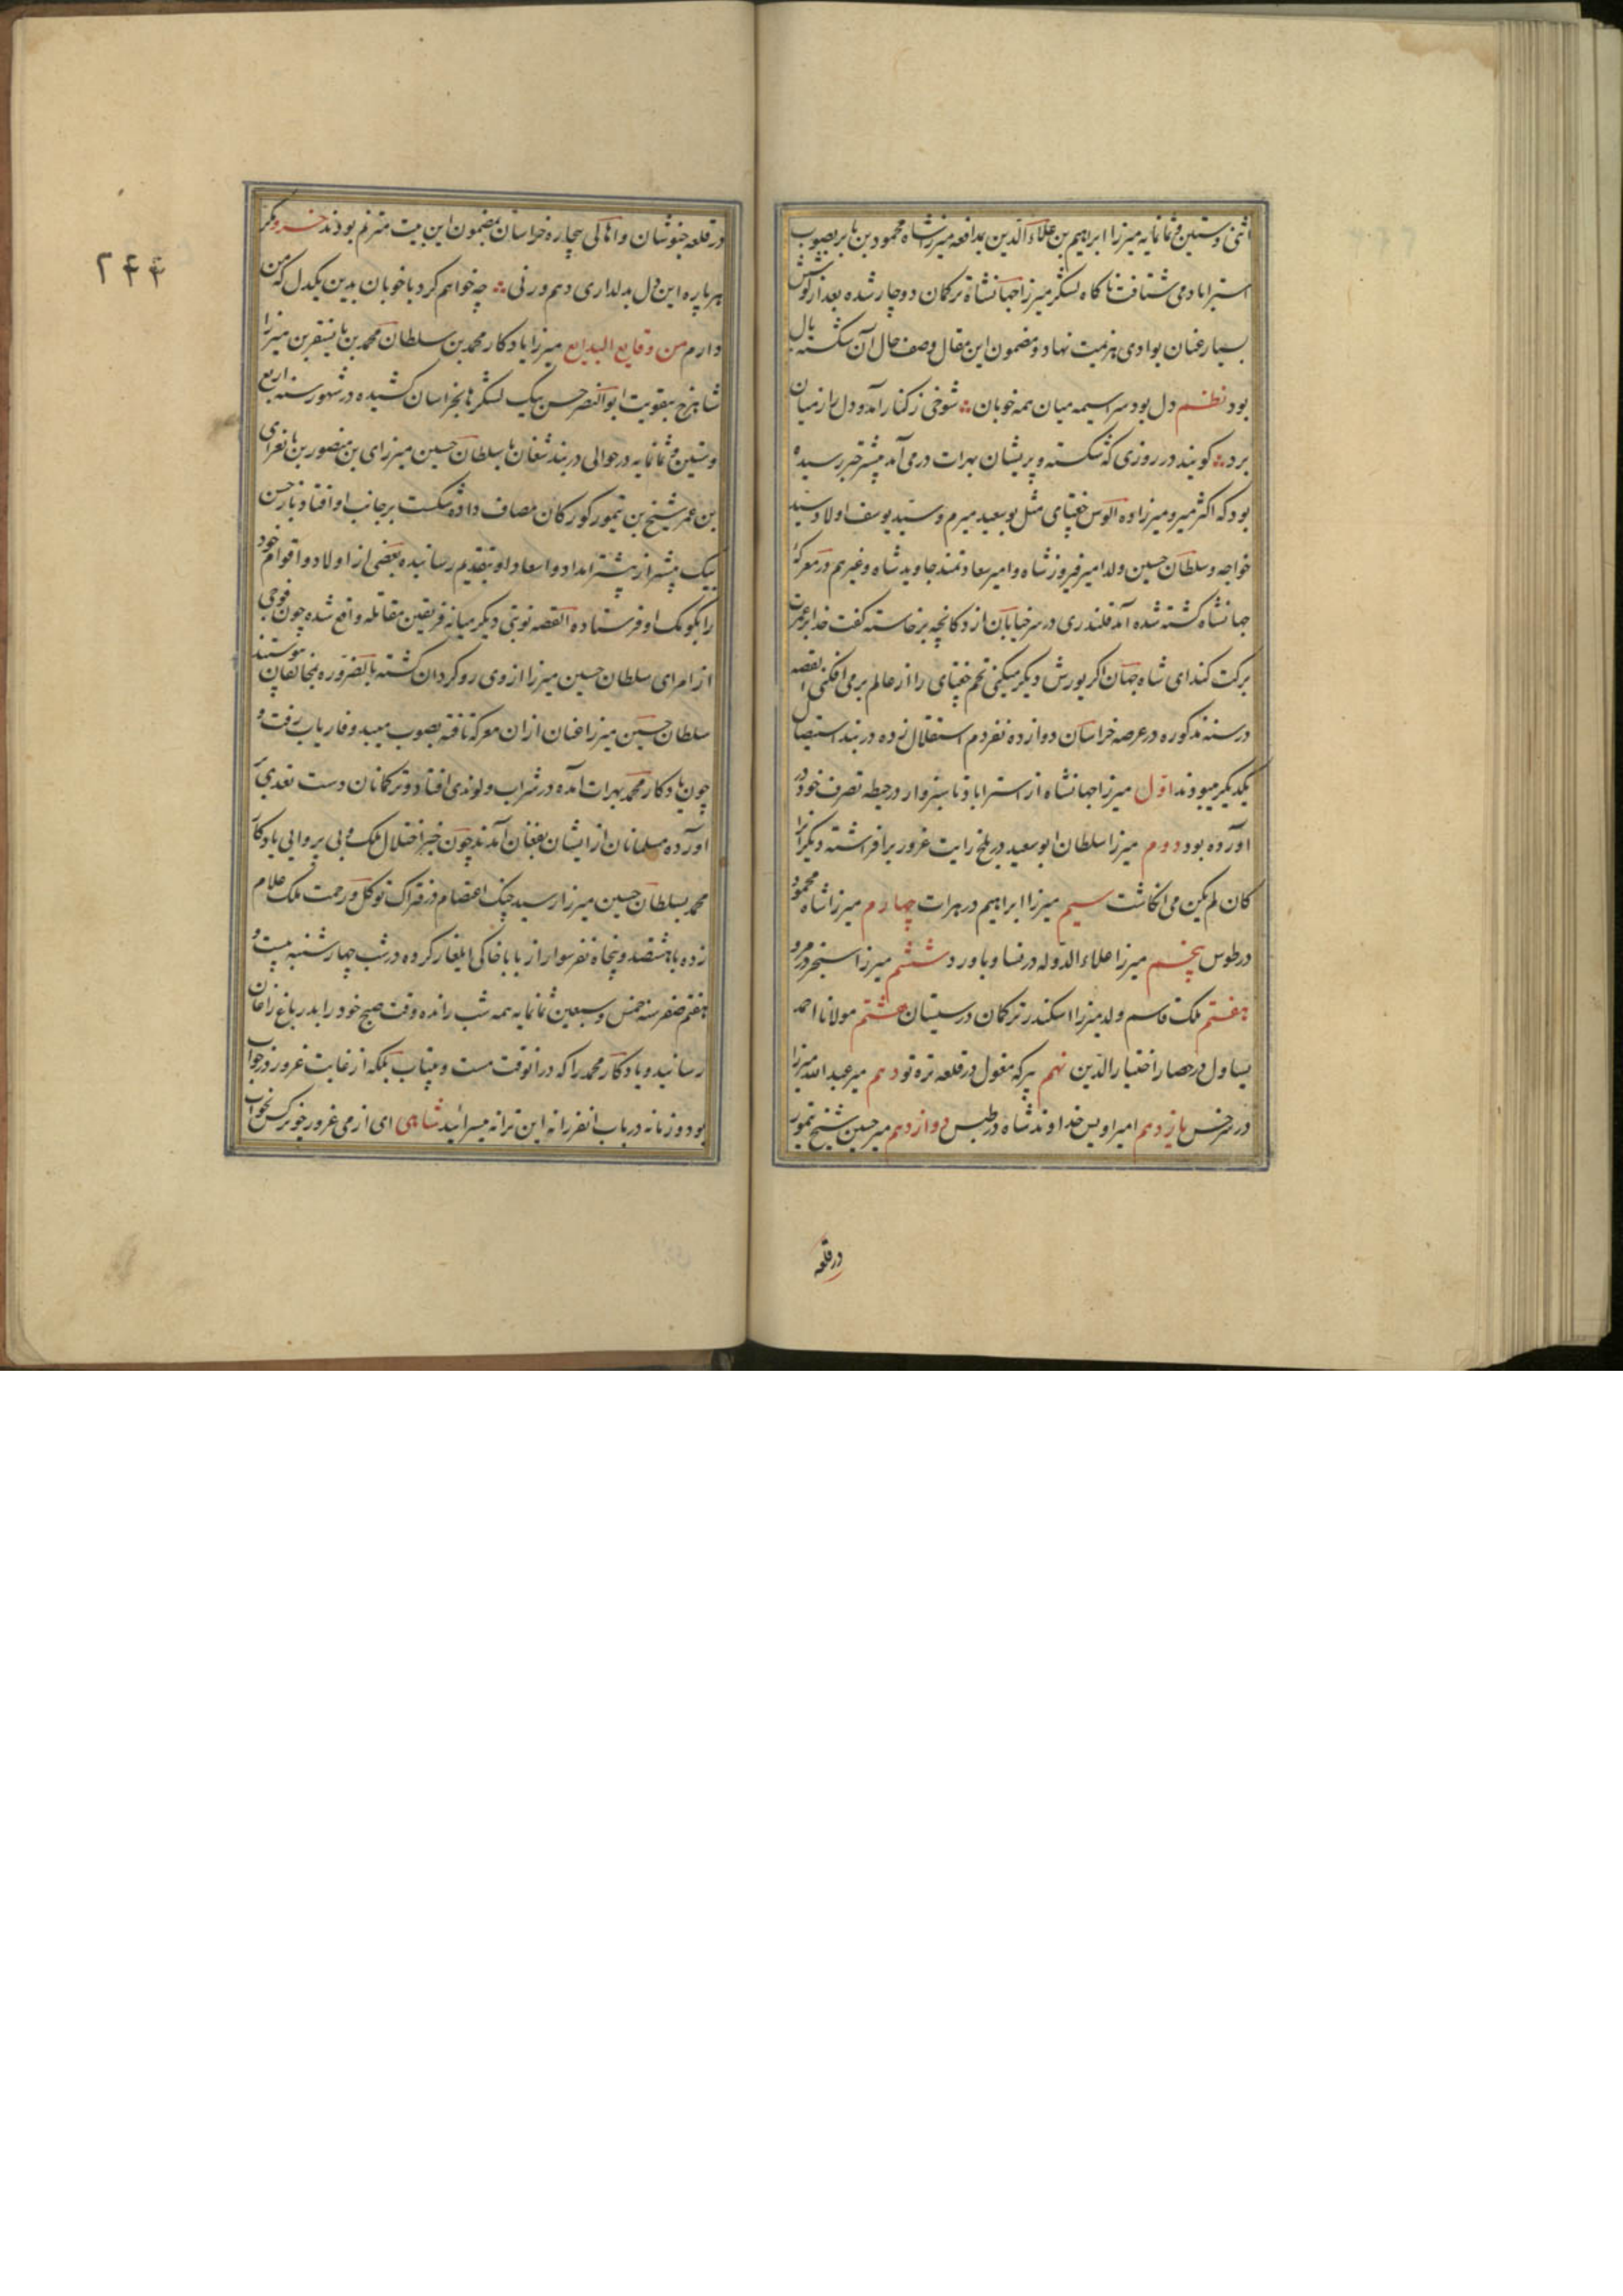 اثنی و ستین و ثمانمایه میرزا ابراهیم بن علاء الدین بمدافعه میرزا شاه محمود بن بابر بصوب
استراباد می شتافت ناکاه لشکر میرزا جهانشاه ترکمان دوچار شده بعد از کوشش
بسیار عنان بوادی هزیمت نهاد و مضمون این مقال وصف حال آن شکسته بال
بود نظم دل بود سراسیمه میان همه خوبان ؞ شوخی ز کنار آمد و دل را ز میان
برد ؞ کویند در روزی که شکسته و پریشان بهرات در می آمد پیشتر خبر رسیده
بود که اکثر میر و میرزاده الوس جغتای مثل بوسعید میرم و سید یوسف اولاد سید
خواجه و سلطان حسین ولد امیر فیروز شاه و امیر سعادتمند جاوید شاه و غیرهم در معرکهٔ
جهانشاه کشته شده اند قلندری در سر خیابان از دکانچه برخاسته کفت خدا بر عمرت
برکت کند ای شاه جهان اکر یورش دیکر میکنی تخم جغتای را از عالم بر می افکنی القصه
در سنه مذکوره در عرصه خراسان دوازده نفر دم استقلال زده در بند استیصال
یکدیکر میبودند اول میرزا جهانشاه از استراباد تا سبزوار در حیطه تصرف خود در
اورده بود دوم میرزا سلطان ابوسعید در بلخ رایت غرور برافراشته دیکرانرا
کان لم یکن می انکاشت سیم میرزا ابراهیم در هرات چهارم میرزا شاه محمود
در طوس پنجم میرزا علاء الدوله در نسا و باورد ششم میرزا سنجر در مرو
هفتم ملک قاسم ولد میرزا اسکندر ترکمان در سیستان هشتم مولانا احمد
یساول در حصار اختیار الدین نهم پیرکه مغول در قلعه تره تو دهم میر عبد الله میرزا
در سرخس یازدهم امیر اویس خداوند شاه در طبس دوازدهم میر حسین شیخ تیمور
در قلعه
۲۴۴
در قلعه جنوشان و اهالی بیچاره خراسان بمضمون این بیت مترنم بودند خسرو مکر
هر پاره این دل بدلداری دهم ورنی ؞ چه خواهم کرد با خوبان بدین یکدل که من
دارم من وقایع البدایع میرزا یادکار محمد بن سلطان محمد بن بایسنقر بن میرزا
شاهرخ بتقویت ابوالنصر حسن بیک لشکرها بخراسان کشیده در شهور سنه اربع
و ستین و ثمانمایه در حوالی دربند شغان با سلطان حسین میرزای بن منصور بن بایقرای
بن عمر شیخ بن تیمور کورکان مصاف داده شکست بر جانب او افتاد باز حسن
بیک پیشتر از پیشتر امداد و اسعاد او بتقدیم رسانیده بعضی از اولاد و اقوام خود
را بکومک او فرستاده القصه نوبتی دیکر میانه فریقین مقاتله واقع شده چون فوجی
از امرای سلطان حسین میرزا از وی رو کردان کشته بالضروره بمخالفان پیوستند
سلطان حسین میرزا عنان ازان معرکه تافته بصوب میبد و فاریاب رفت و
چون یادکار محمد بهرات امده در شراب و لوندی افتاد و ترکمانان دست تعدی بر
اورده مسلمانان از ایشان بفغان آمدند چون خبر اختلال ملک و بی پروایی یادکار
محمد بسلطان حسین میرزا رسید چنک اعتصام در فتراک توکل و رحمت ملک علام
زده با هشتصد و پنجاه نفر سوار از بابا خاکی ایلغار کرده در شب چهار شنبه بیست و
هفتم صفر سنه خمس و سبعین ثمانمایه همه شب رانده وقت صبح خود را بدر باغ زاغان
رسانید و یادکار محمد را که در انوقت مست و بیتاب بلکه از غایت غرور در خواب
بود و زمانه در باب انفرزانه این ترانه میسرائید شاهی ای از می غرور چو نرکس بخواب